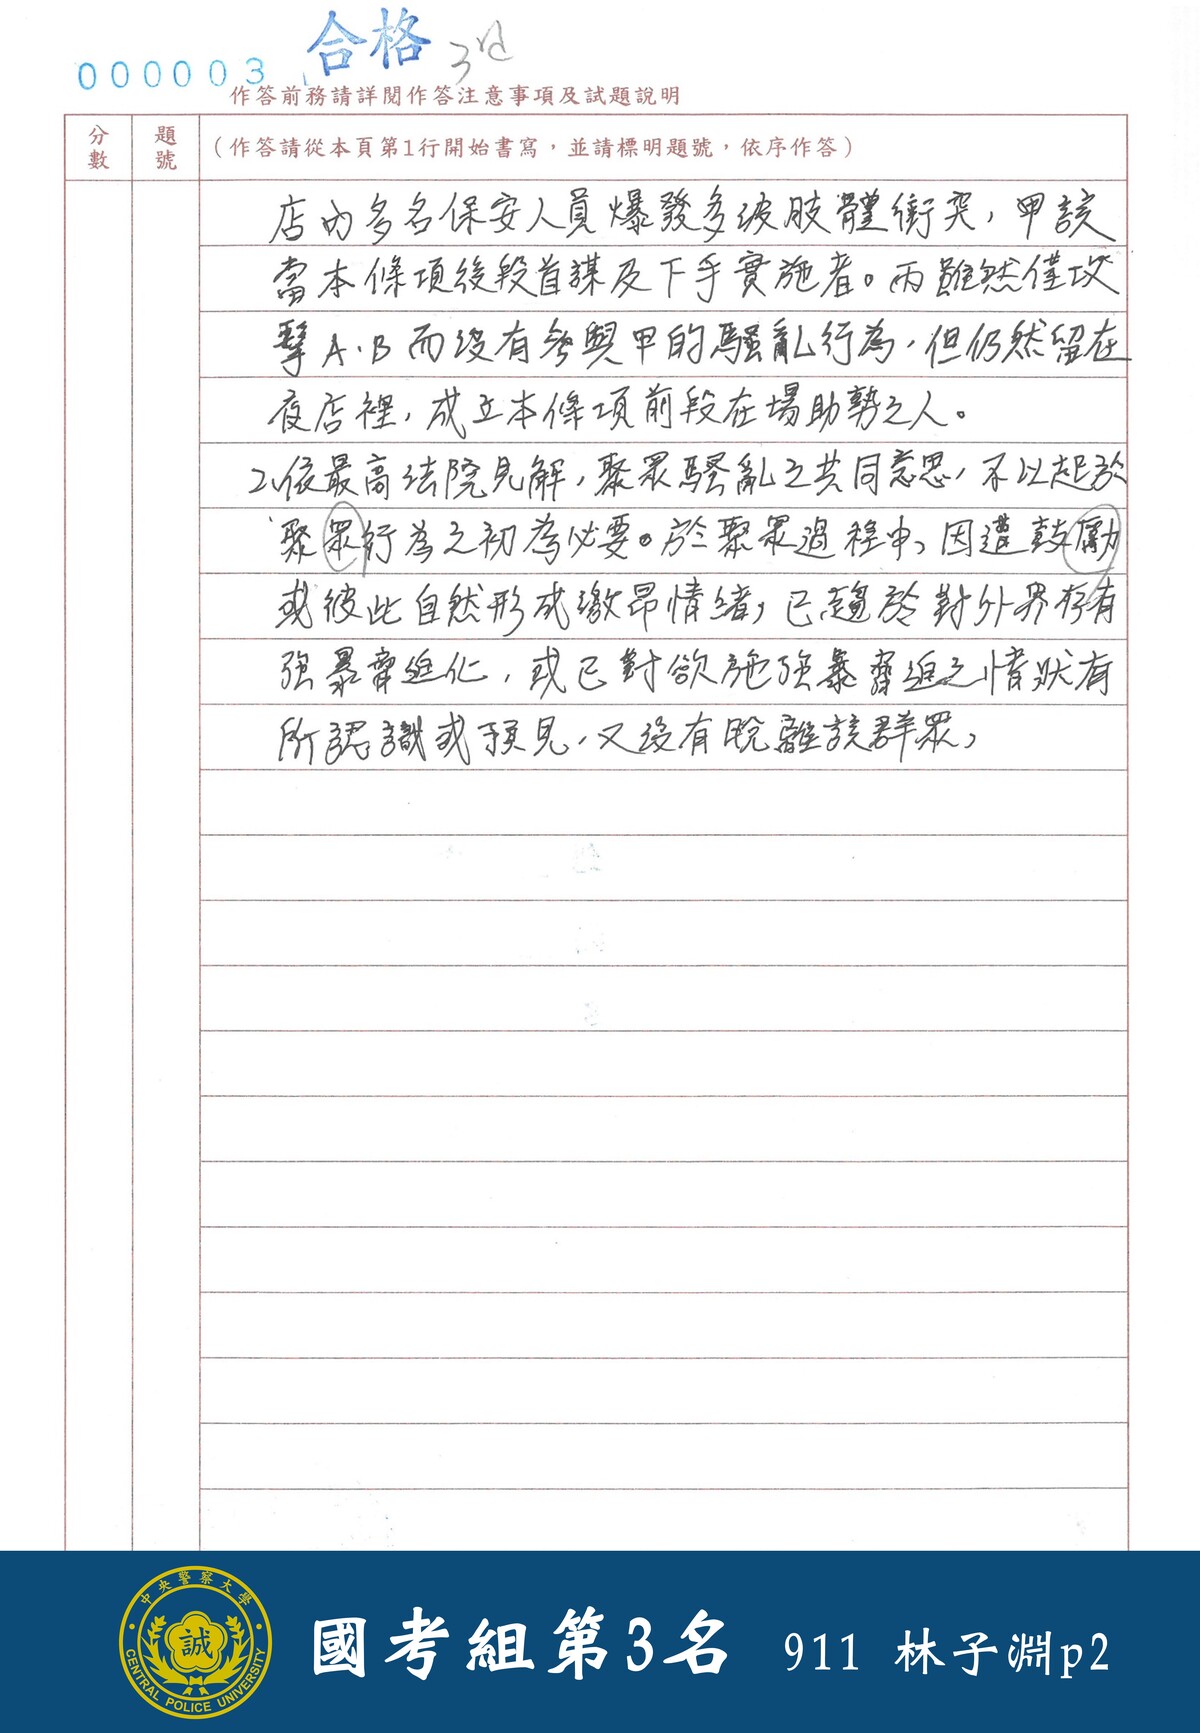 000003
合格
作答前務請詳閱作答注意事項及試題說明
分數
題號
(作答請從本頁第1行開始書寫，並請標明題號，依序作答)
店內多名保安人員爆發多波肢體衝突，甲該
當本條項後段首謀及下手實施者。丙雖然僅攻
擊A、B而沒有參與甲的騷亂行為，但仍然留在
夜店裡，成立本條項前段在場助勢之人。
2、依最高法院見解，聚眾騷亂之共同意思，不以起於
聚眾行為之初為必要。於聚眾過程中，因遭鼓勵
或彼此自然形成激昂情緒，已趨於對外界存有
強暴脅迫化，或已對欲施強暴脅迫之情狀有
所認識或預見，又沒有脫離該群眾，
中央警察大學
誠
CENTRAL POLICE UNIVERSITY
國考組第3名 911 林子淵p2